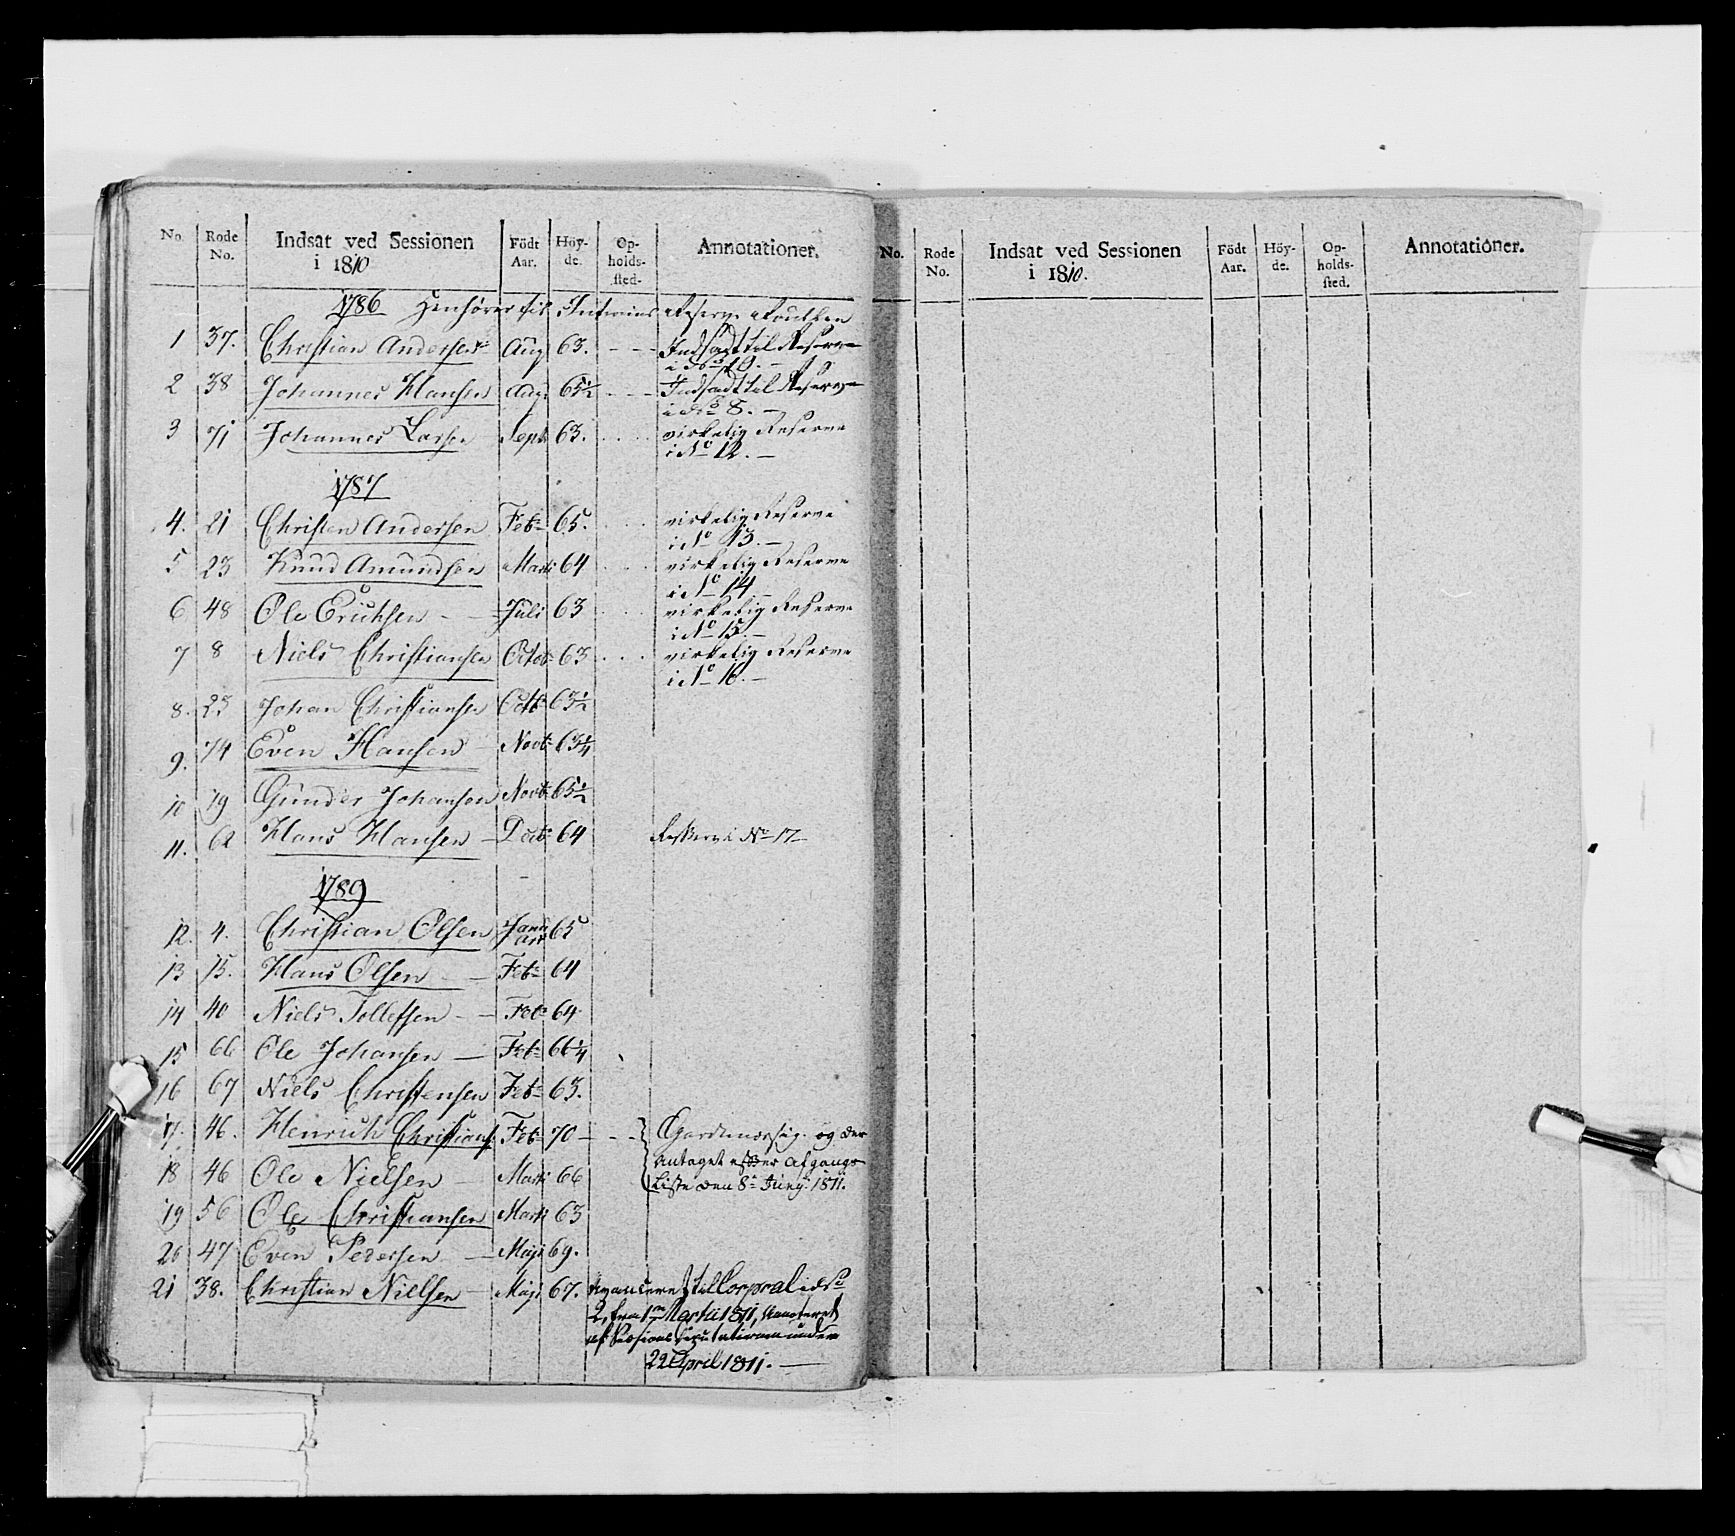 No. Rode No. Indsat ved Sessionen i 1810 Födt Aar. Höy-de. Op-holds-sted. Annotationer.
1786 henhører til Interims Reserve Roullen
1 37. Christian Andersen Aug 63. - - Indsadt til Reserve
i No 10. -
2 38 Johannes Hansen Aug. 65½ - - Indsadt til Reserve
i No 8. -
3 71 Johannes Larsen Septb 63. virkelig Reserve
i No 12. -
1787
4. 21 Christen Andersen Feb 65. virkelig Reserve
i No 13. -
5 23 Knud Amundsen Marti 64 virkelig Reserve
i No 14. -
6 48 Ole Erichsen - - Juli 63 virkelig Reserve
i No 15. -
7 8 Niels Christiansen Octob 63 virkelig Reserve
i No 16. -
8. 23 Johan Christiansen Octb 63½
9. 74 Even Hansen - Novb 63¼
10 79 Gunder Johansen Novb 65½
11. 62 Hans Hansen - Decb 64 Reserve i No 17
1789
12. 4. Christian Olsen Januari 65
13 15. Hans Olsen - Feb 64
14 40 Niels Tollefsen - - Feb 64
15 66 Ole Johansen - Feb 66¼
16 67 Niels Christensen Feb 63.
17. 46. Henrich Christians. Feb 70 - - - Gardemæsig. og der
antaget efter Afgangs
Liste den 8de Junij 1811.
18 46 Ole Nielsen - Marti 66
19 56 Ole Christiansen Marti 63
20 47 Even Pedersen - Maji 69.
21 38. Christian Nielsen - Maji 67. Avanceret til Corporal i No
2, fra 1ste Martii 1811, Annoteret
af Sessions Deputationen under
22 April 1811. -
No. Rode No. Indsat ved Sessionen i 1810. Födt Aar. Höy-de. Op-holds-sted. Annotationer.